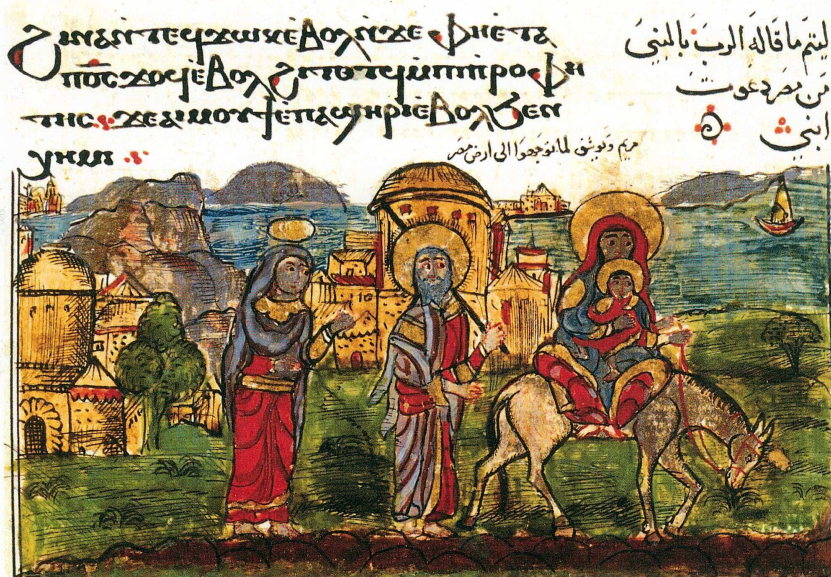 ϩⲓⲛⲁ ⲛⲧⲉϥϫⲱⲕ ⲉⲃⲟⲗ ⲛϫⲉ ⲫⲏⲉⲧⲁ
ⲡϭⲥ ϫⲟϥ ⲉⲃⲟⲗ ϩⲓⲧⲟⲧϥ ⲙⲡⲓⲡⲣⲟⲫⲏ
ⲧⲏⲥ ϫⲉ ⲁⲓⲙⲟⲩϯ ⲉⲡⲁϣⲏⲣⲓ ⲉⲃⲟⲗ ϧⲉⲛ
ⲭⲏⲙⲓ
ليتم ما قاله الرب بالنبي
من مصر دعوت
ابني
مريم ويوسف لما توجهوا الى ارض مصر